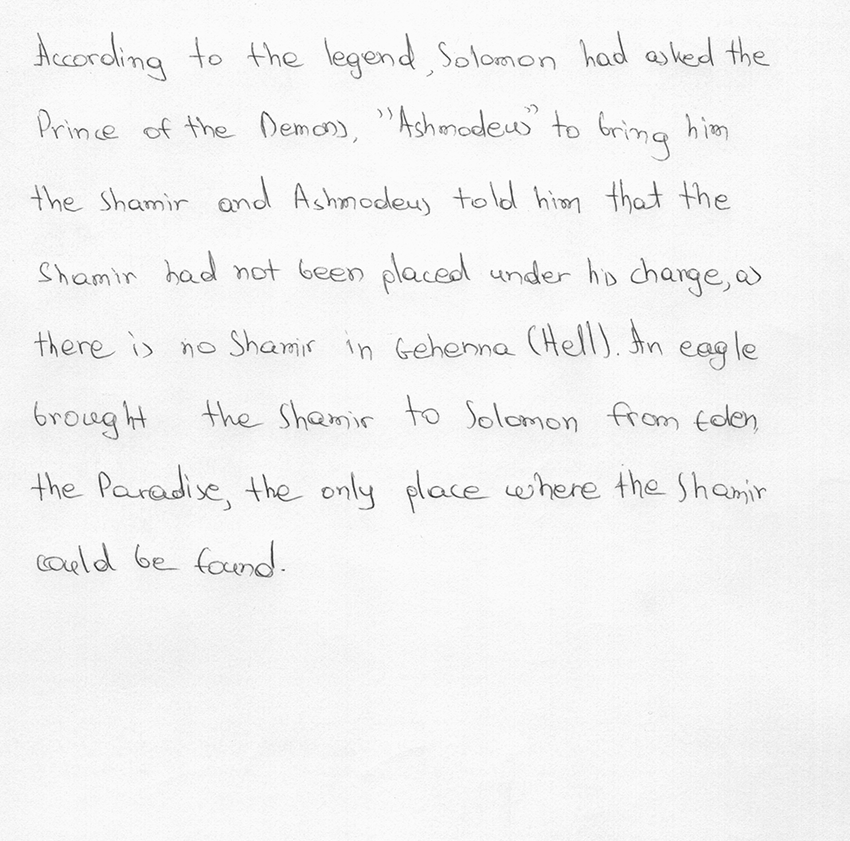 According to the legend, Solomon had asked the
Prince of the Demons, "Ashmodeus" to bring him
the Shamir and Ashmodeus told him that the
Shamir had not been placed under his change, as
there is no Shamir in Gehenna (Hell). An eagle
brought the Shamir to Solomon from Eden,
the Paradise, the only place where the Shamir
could be found.